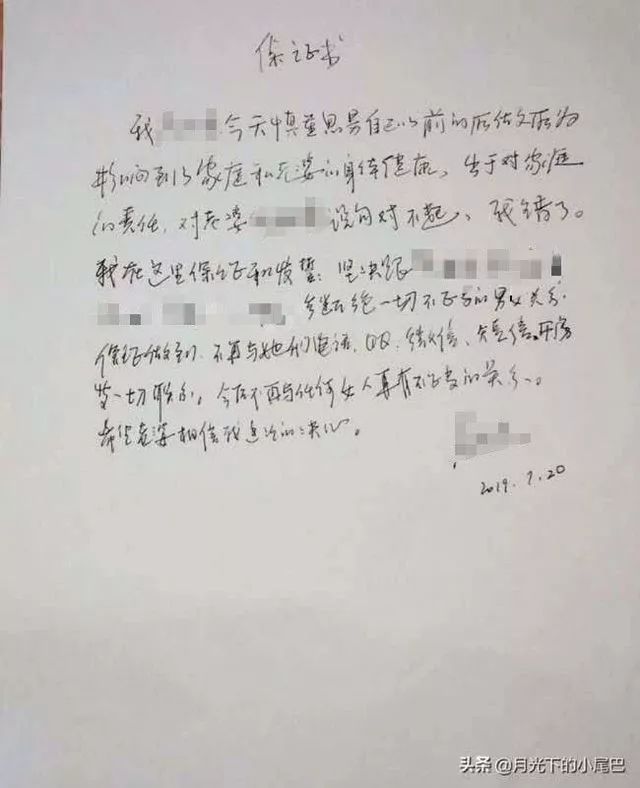 保证书
我 今天慎重思考自己以前的所做所为
影响到了家庭和老婆的身体健康，出于对家庭
的责任，对老婆 说句对不起、我错了。
我在这里保证和发誓：坚决跟
断绝一切不正当的男女关系.
保证做到.不再与她们电话、QQ、微信、短信、开房
等一切联系，今后不再与任何女人再有不正当的关系。
希望老婆相信我这次的决心。
2019.7.20
头条 @月光下的小尾巴